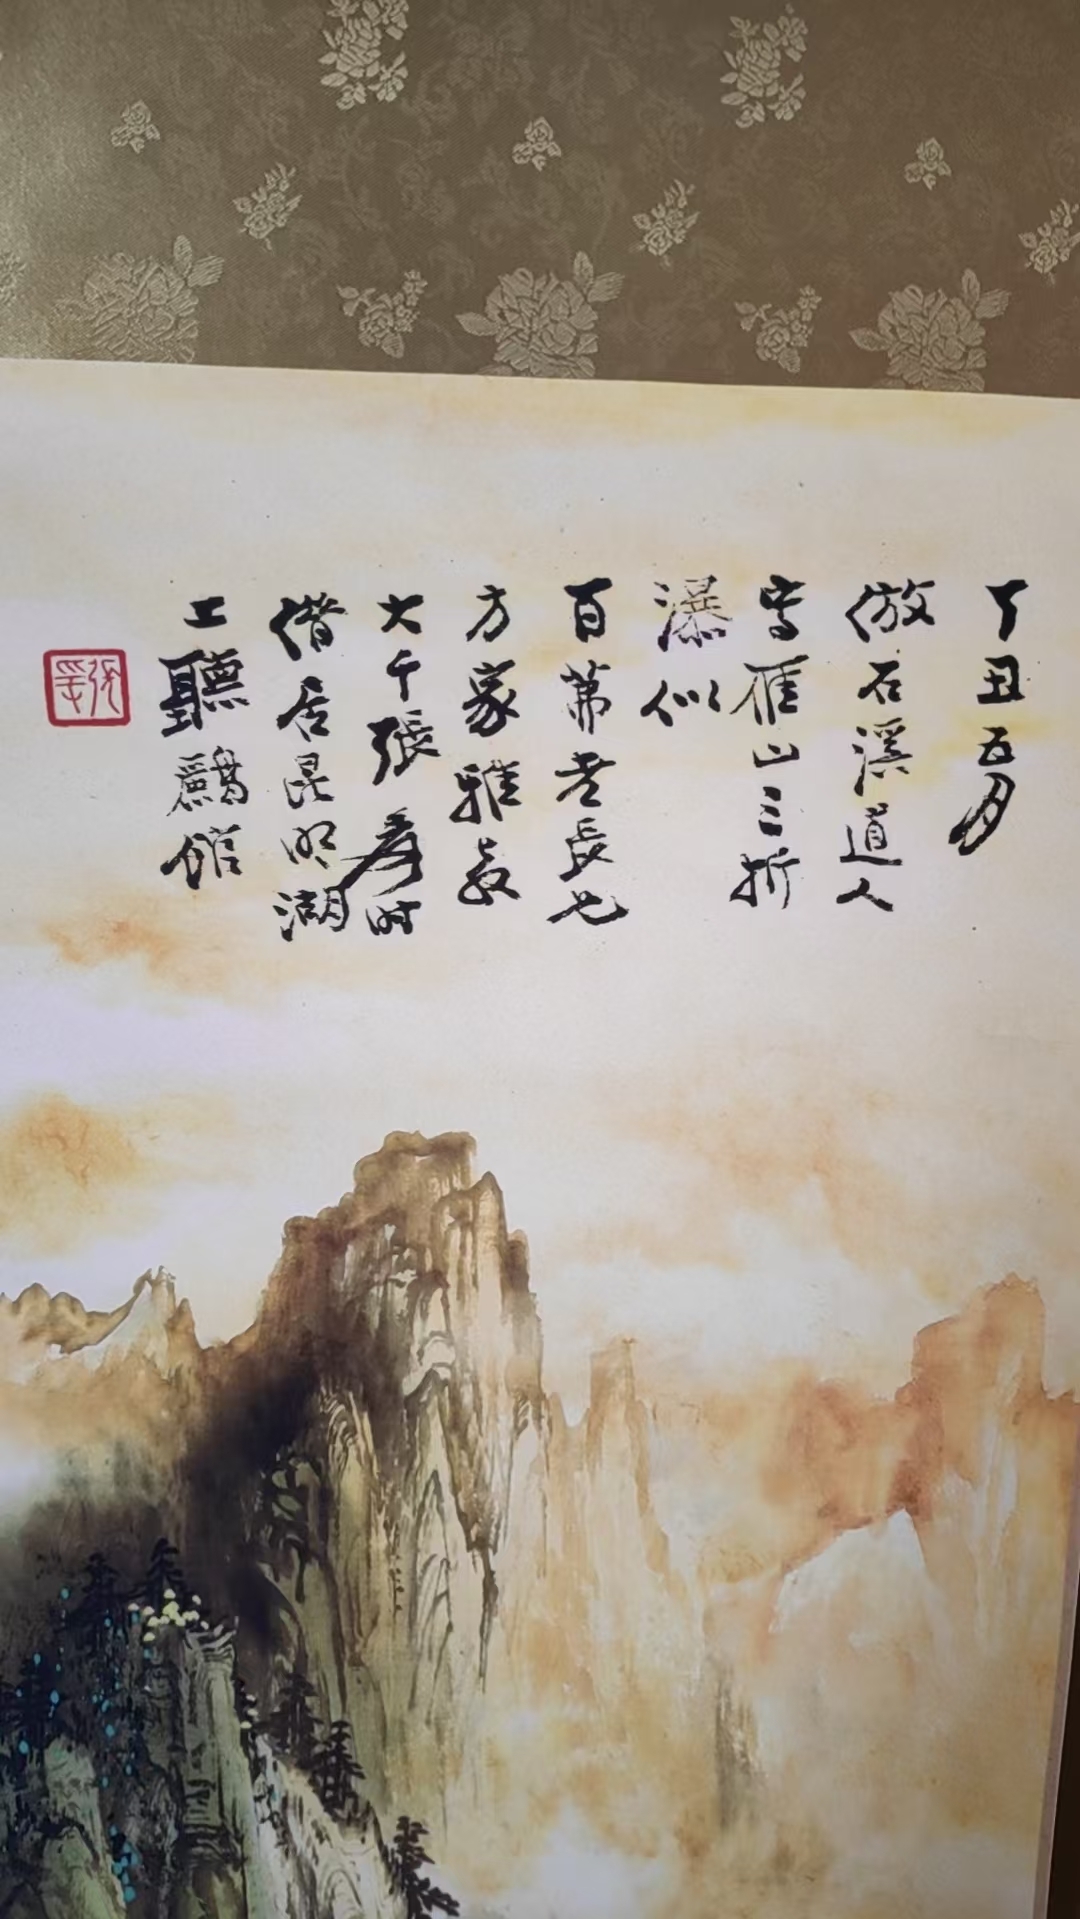 丁丑五月
倣石溪道人
写雁山三折
瀑似
百弟老長也
方家雅教
大千張爰时
借居昆明湖
上聽鸝館
張爰